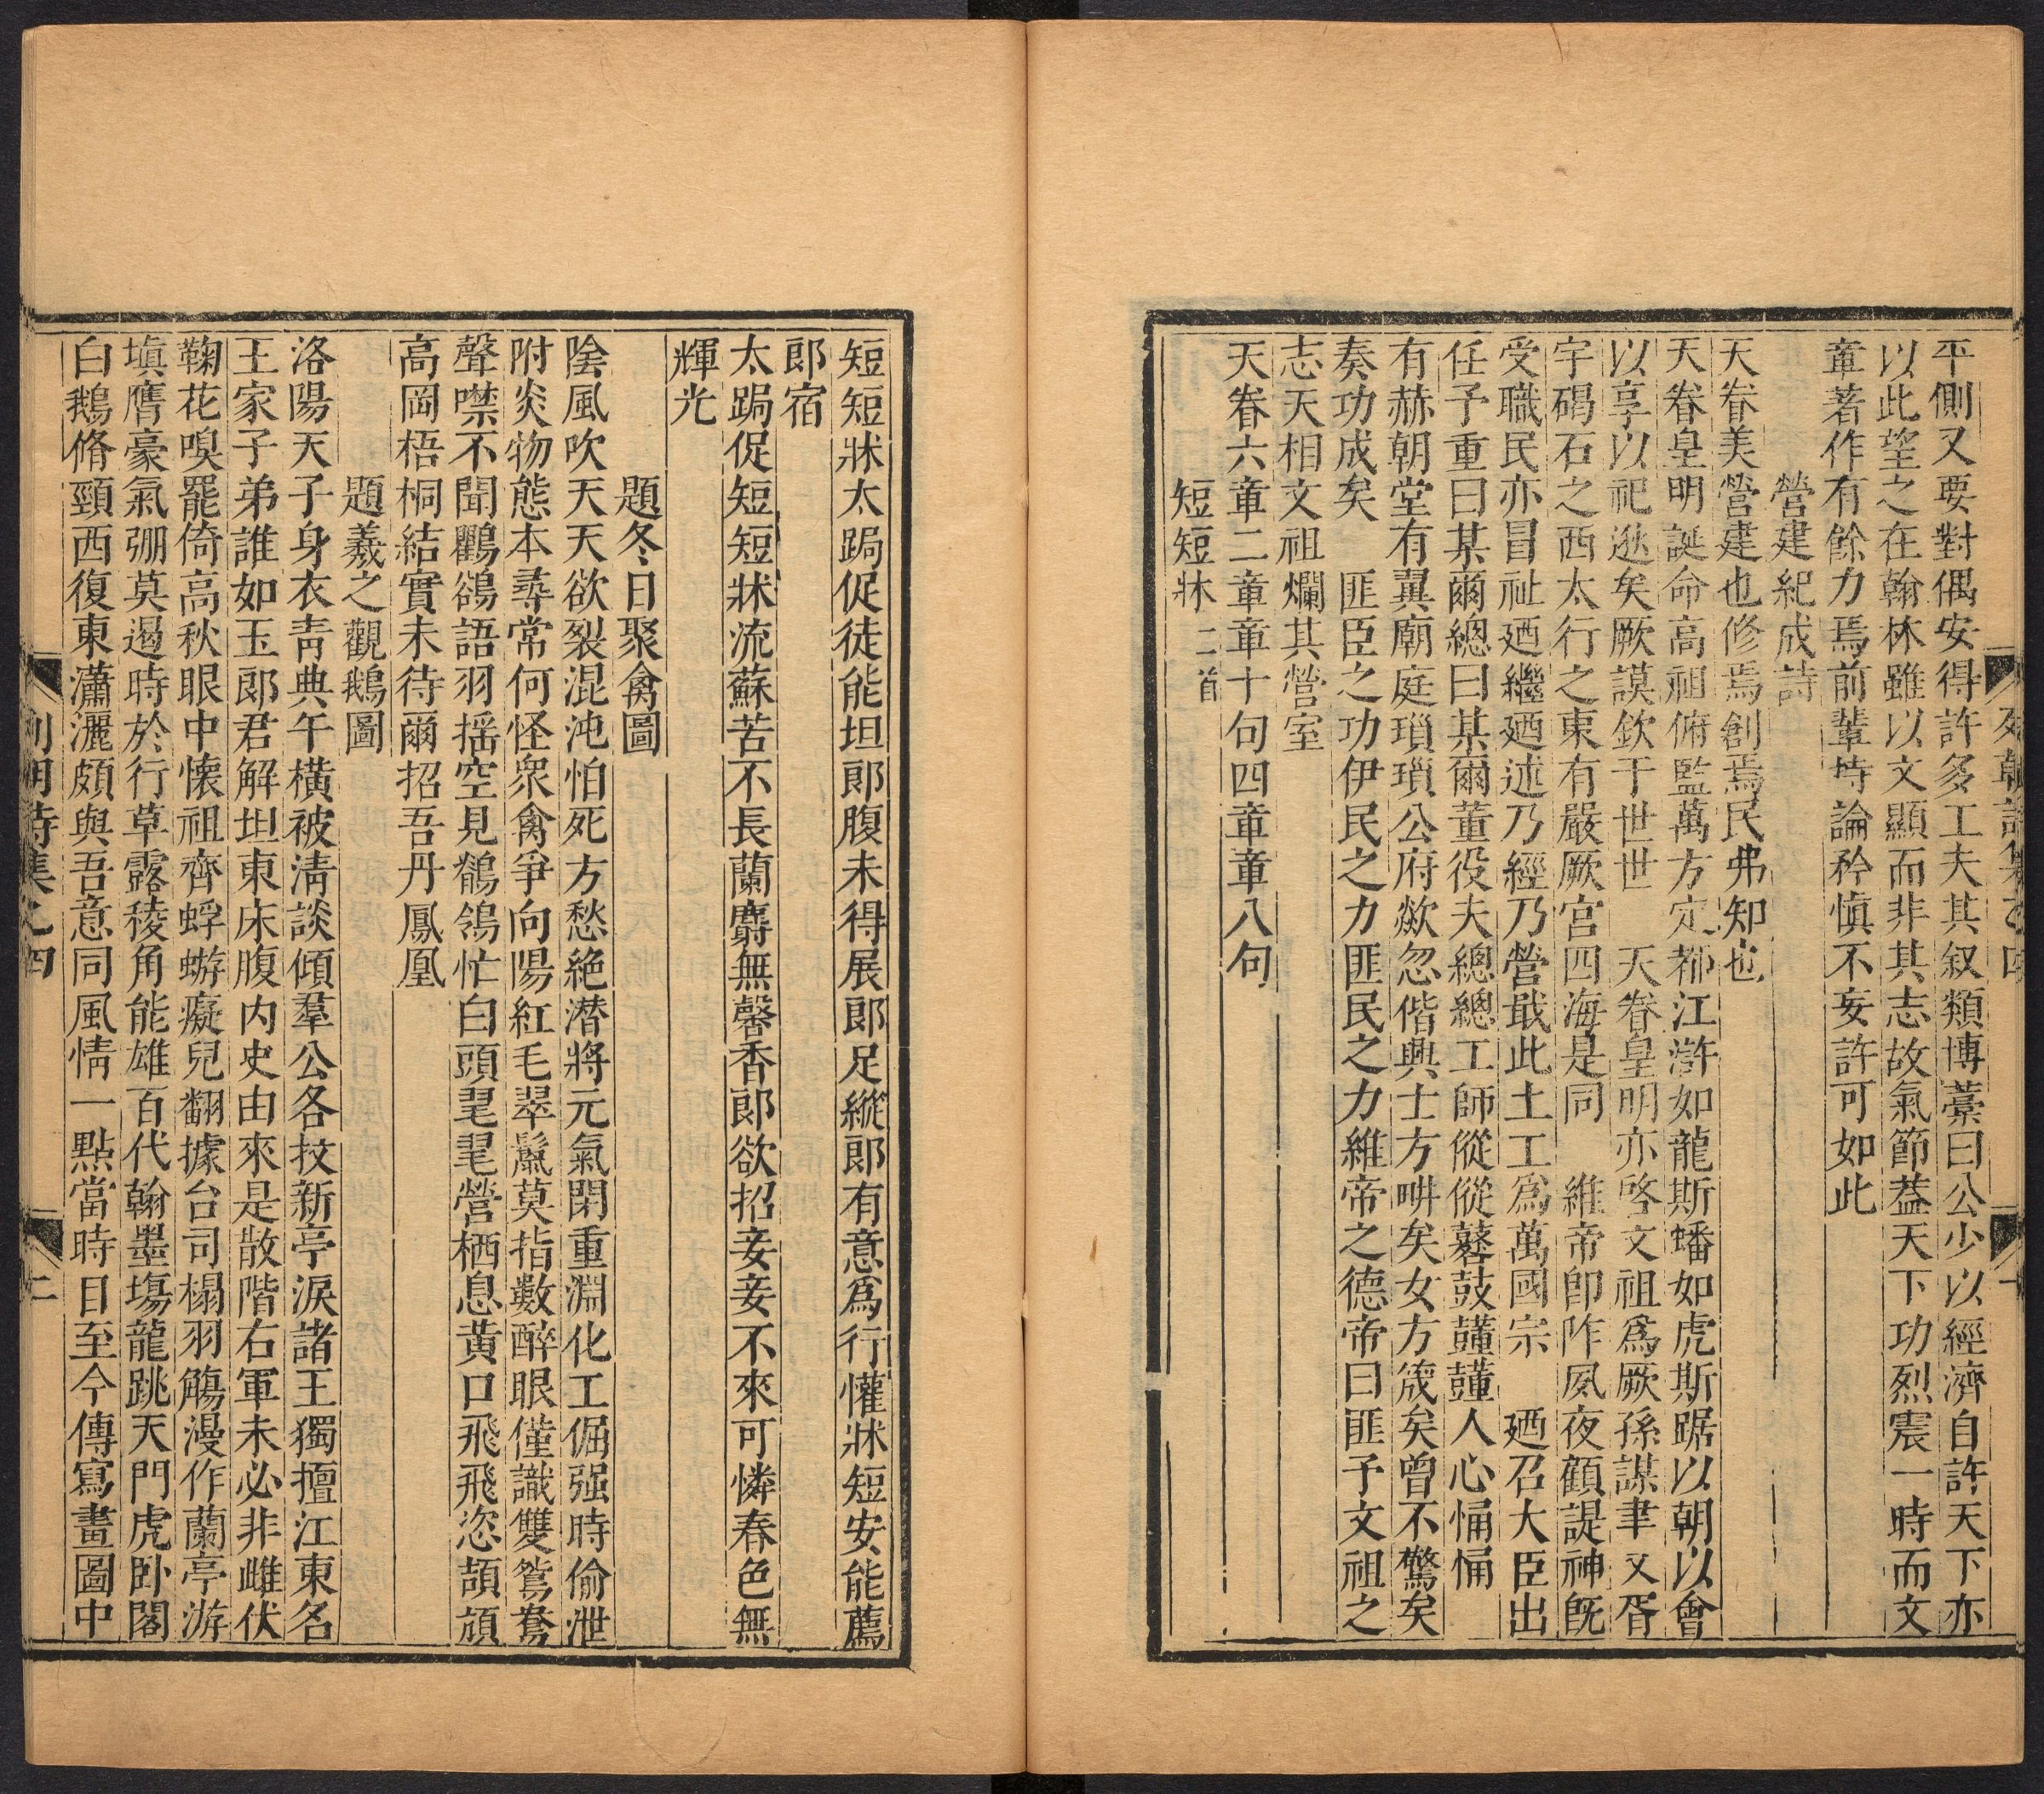 平側又要對偶安得許多工夫其叙類博藁曰公少以經濟自許天下亦
以此望之在翰林雖以文顯而非其志故氣節葢天下功烈震一時而文
章著作有餘力焉前輩持論矜愼不妄許可如此
營建紀成詩
天眷美營建也修焉創焉民弗知也
天眷皇明誕命高祖俯監萬方定都江滸如龍斯蟠如虎斯踞以朝以會
以享以祀逖矣厥謨欽于世世　天眷皇明亦啓文祖爲厥孫謀聿又胥
宇碣石之西太行之東有嚴厥宮四海是同　維帝卽阼夙夜顧諟神旣
受職民亦冒祉廼繼廼述乃經乃營戢此土工爲萬國宗　廼召大臣出
任予重曰某爾總曰某爾董役夫總總工師從從鼛鼓薨薨人心悀悀
有赫朝堂有翼廟庭瑣瑣公府歘忽偕興士方畊矣女方箴矣曾不驚矣
奏功成矣　匪臣之功伊民之力匪民之力維帝之德帝曰匪予文祖之
志天相文祖爛其營室
天眷六章二章章十句四章章八句
短短牀二首
短短牀太跼促徒能坦郞腹未得展郞足縱郞有意爲行懽牀短安能薦
郞宿
太跼促短短牀流蘇苦不長蘭麝無馨香郞欲招妾妾不來可憐春色無
輝光
題冬日聚禽圖
陰風吹天天欲裂混沌怕死方愁絶潛將元氣閉重淵化工倔强時偷泄
附炎物態本尋常何怪衆禽爭向陽紅毛翠鬛莫指數醉眼僅識雙鴛鴦
聲噤不聞鸜鵒語羽搖空見鶺鴒忙白頭毣毣營栖息黃口飛飛恣頡頏
高岡梧桐結實未待爾招吾丹鳳凰
題羲之觀鵝圖
洛陽天子身衣靑典午橫被淸談傾羣公各抆新亭淚諸王獨擅江東名
王家子弟誰如玉郞君解坦東床腹内史由來是散階右軍未必非雌伏
鞠花嗅罷倚高秋眼中懐祖齊蜉蝣癡兒翻據台司榻羽觴漫作蘭亭游
塡膺豪氣弸莫遏時於行草露稜角能雄百代翰墨塲龍跳天門虎卧閣
白鵝脩頸西復東瀟灑頗與吾意同風情一點當時目至今傳寫畫圖中
列朝詩集乙四
二